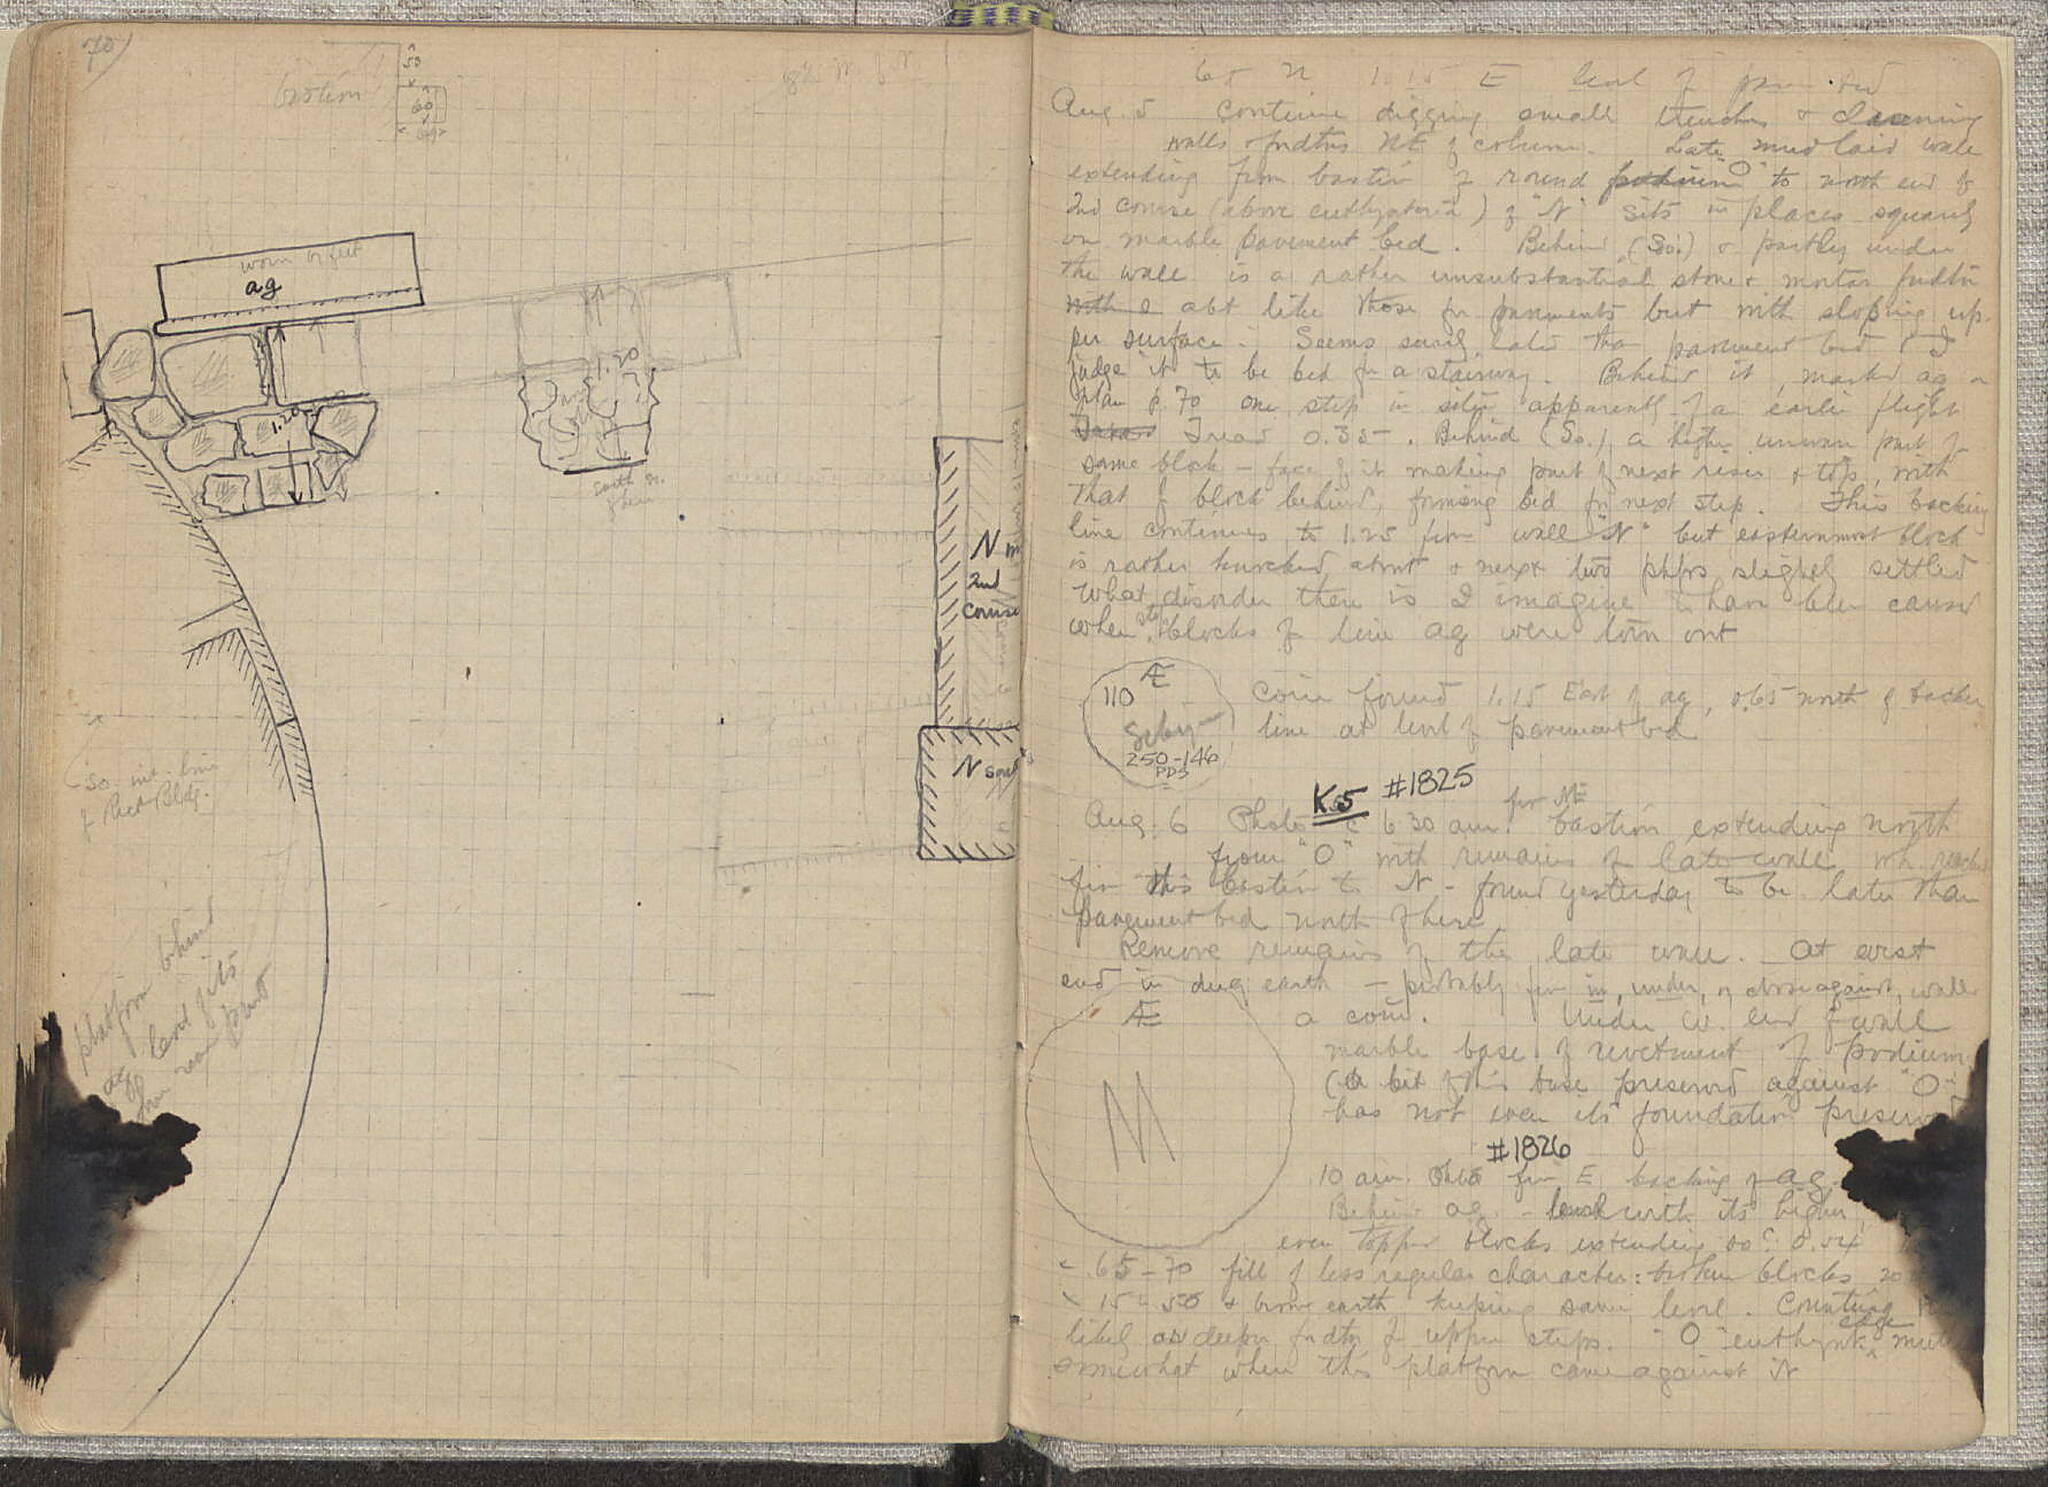 70
bastion
50
60
worn by feet
ag
1.20
1.20
N
2nd
Course
N
So. line
platform behind
ag level its
rear part
65 N 1.15 E level of
Aug. 5 Continue digging small trenches & cleaning
walls & fndtns NE of column. Late mud laid wall
extending from bastion of round "O" to north end of
2nd course (above euthynteria) of "N" sits in places squarely
on marble pavement bed. Behind (So.) & partly under
the wall is a rather unsubstantial stone & mortar fndtn
abt like those for pavements but with sloping up-
per surface. Seems surely later than pavement bed & I
judge it to be bed for a stairway. Behind it, marked ag on
plan p. 70 one step in situ apparently of an earlier flight
Tread 0.35. Behind (So.) a higher unworn part of
same block – face of it making part of next riser & top, with
that of block behind, forming bed for next step. This backing
line continues to 1.25 from wall "N" but easternmost block
is rather knocked about & next two perhps slightly settled
What disorder there is I imagine to have been caused
when step blocks of line ag were torn out
Æ
110
250-146
PDS
Coin found 1.15 East of ag, 0.65 north of backer
line at level of pavement bed
K5 #1825
from NE
Aug. 6 Photo 6 30 am. bastion extending north
from "O" with remains of late wall wh. reached
from this bastion to N – found yesterday to be later than
pavement bed north of here
Remove remains of the late wall. At west
end in dug earth – probably from in, under, or close against, wall
Æ a coin. Under W. end of wall
marble base of revetment of podium
(a bit of this base preserved against "O"
has not even its foundation preserved
M
#1826
10 am. Photo from E backing of ag.
Behind ag – level with its higher,
even topped blocks extending so. 0.54
.65–70 fill of less regular character: broken blocks 20
15 – 50 & brown earth keeping same level. Counting
likely as deeper fndtn for upper steps. "O" euthynt. edge
somewhat where this platform came against it